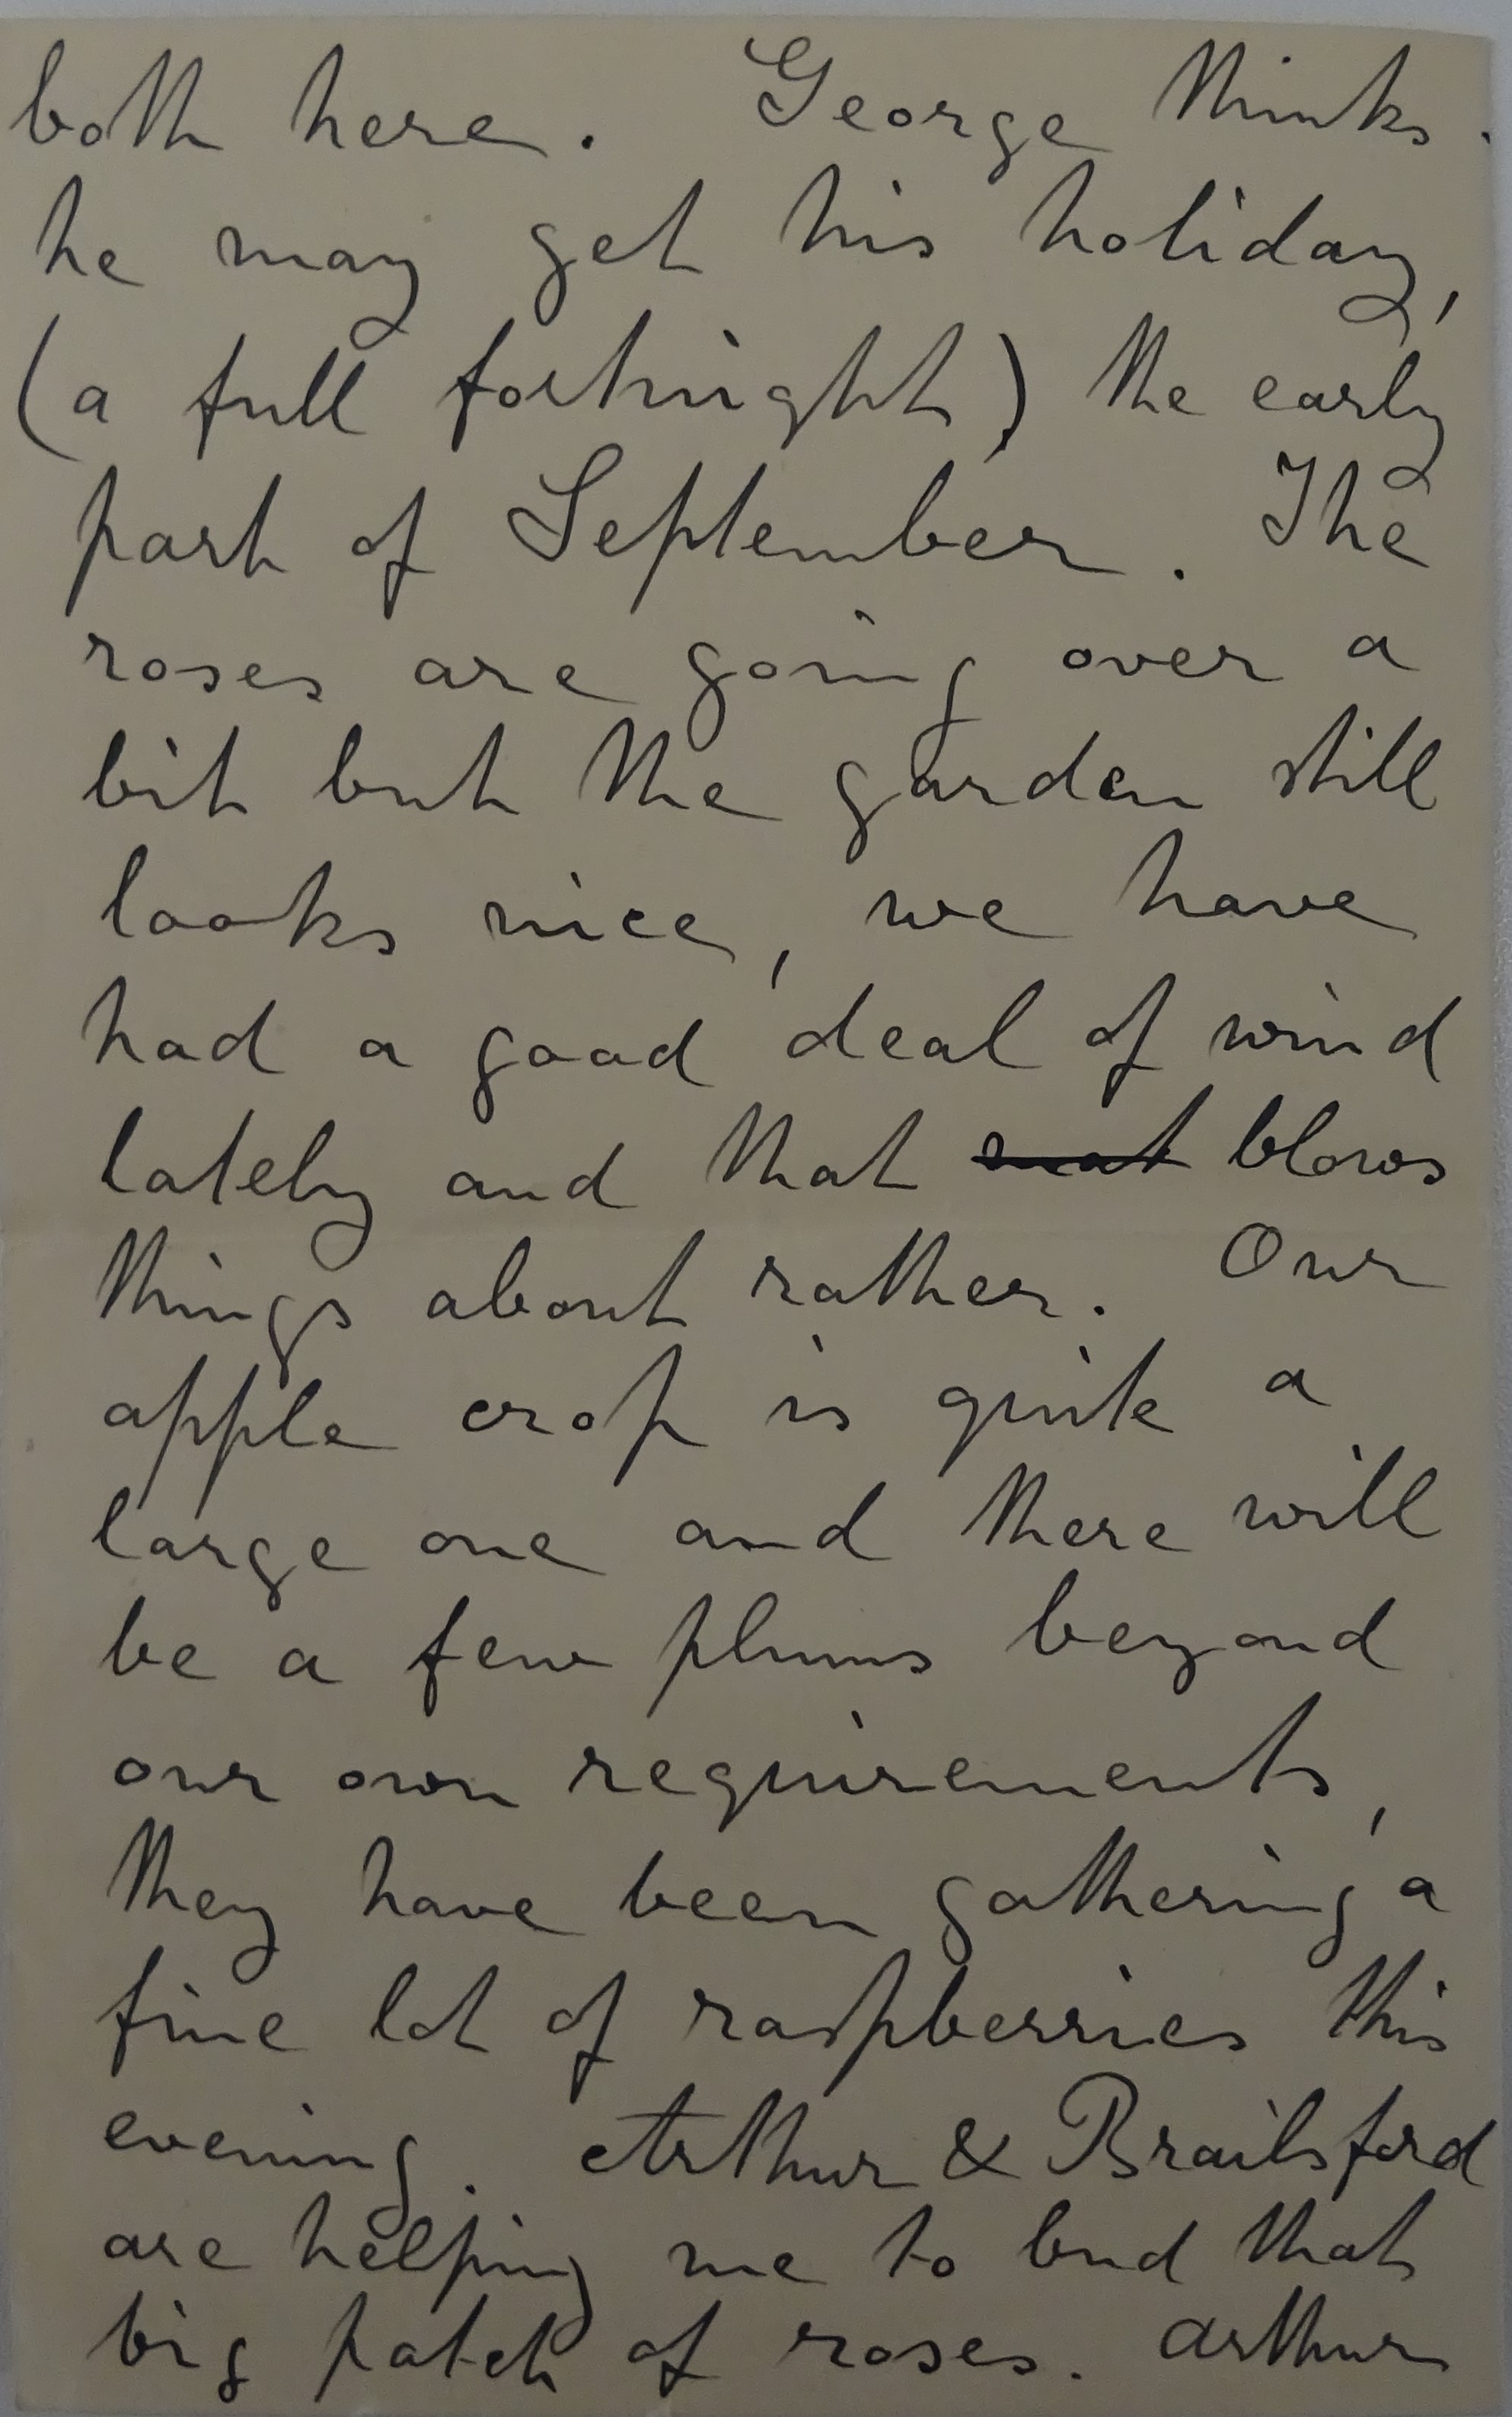 both here. George thinks
he may get his holiday,
(a full fortnight) the early
part of September. The
roses are going over a
bit but the garden still
looks nice, we have
had a good deal of wind
lately and that blows
things about rather. Our
apple crop is quite a
large one and there will
be a few plums beyond
our own requirements,
they have been gathering a
fine lot of raspberries this
evening. Arthur & Brailsford
are helping me to bud that
big patch of roses. Arthur